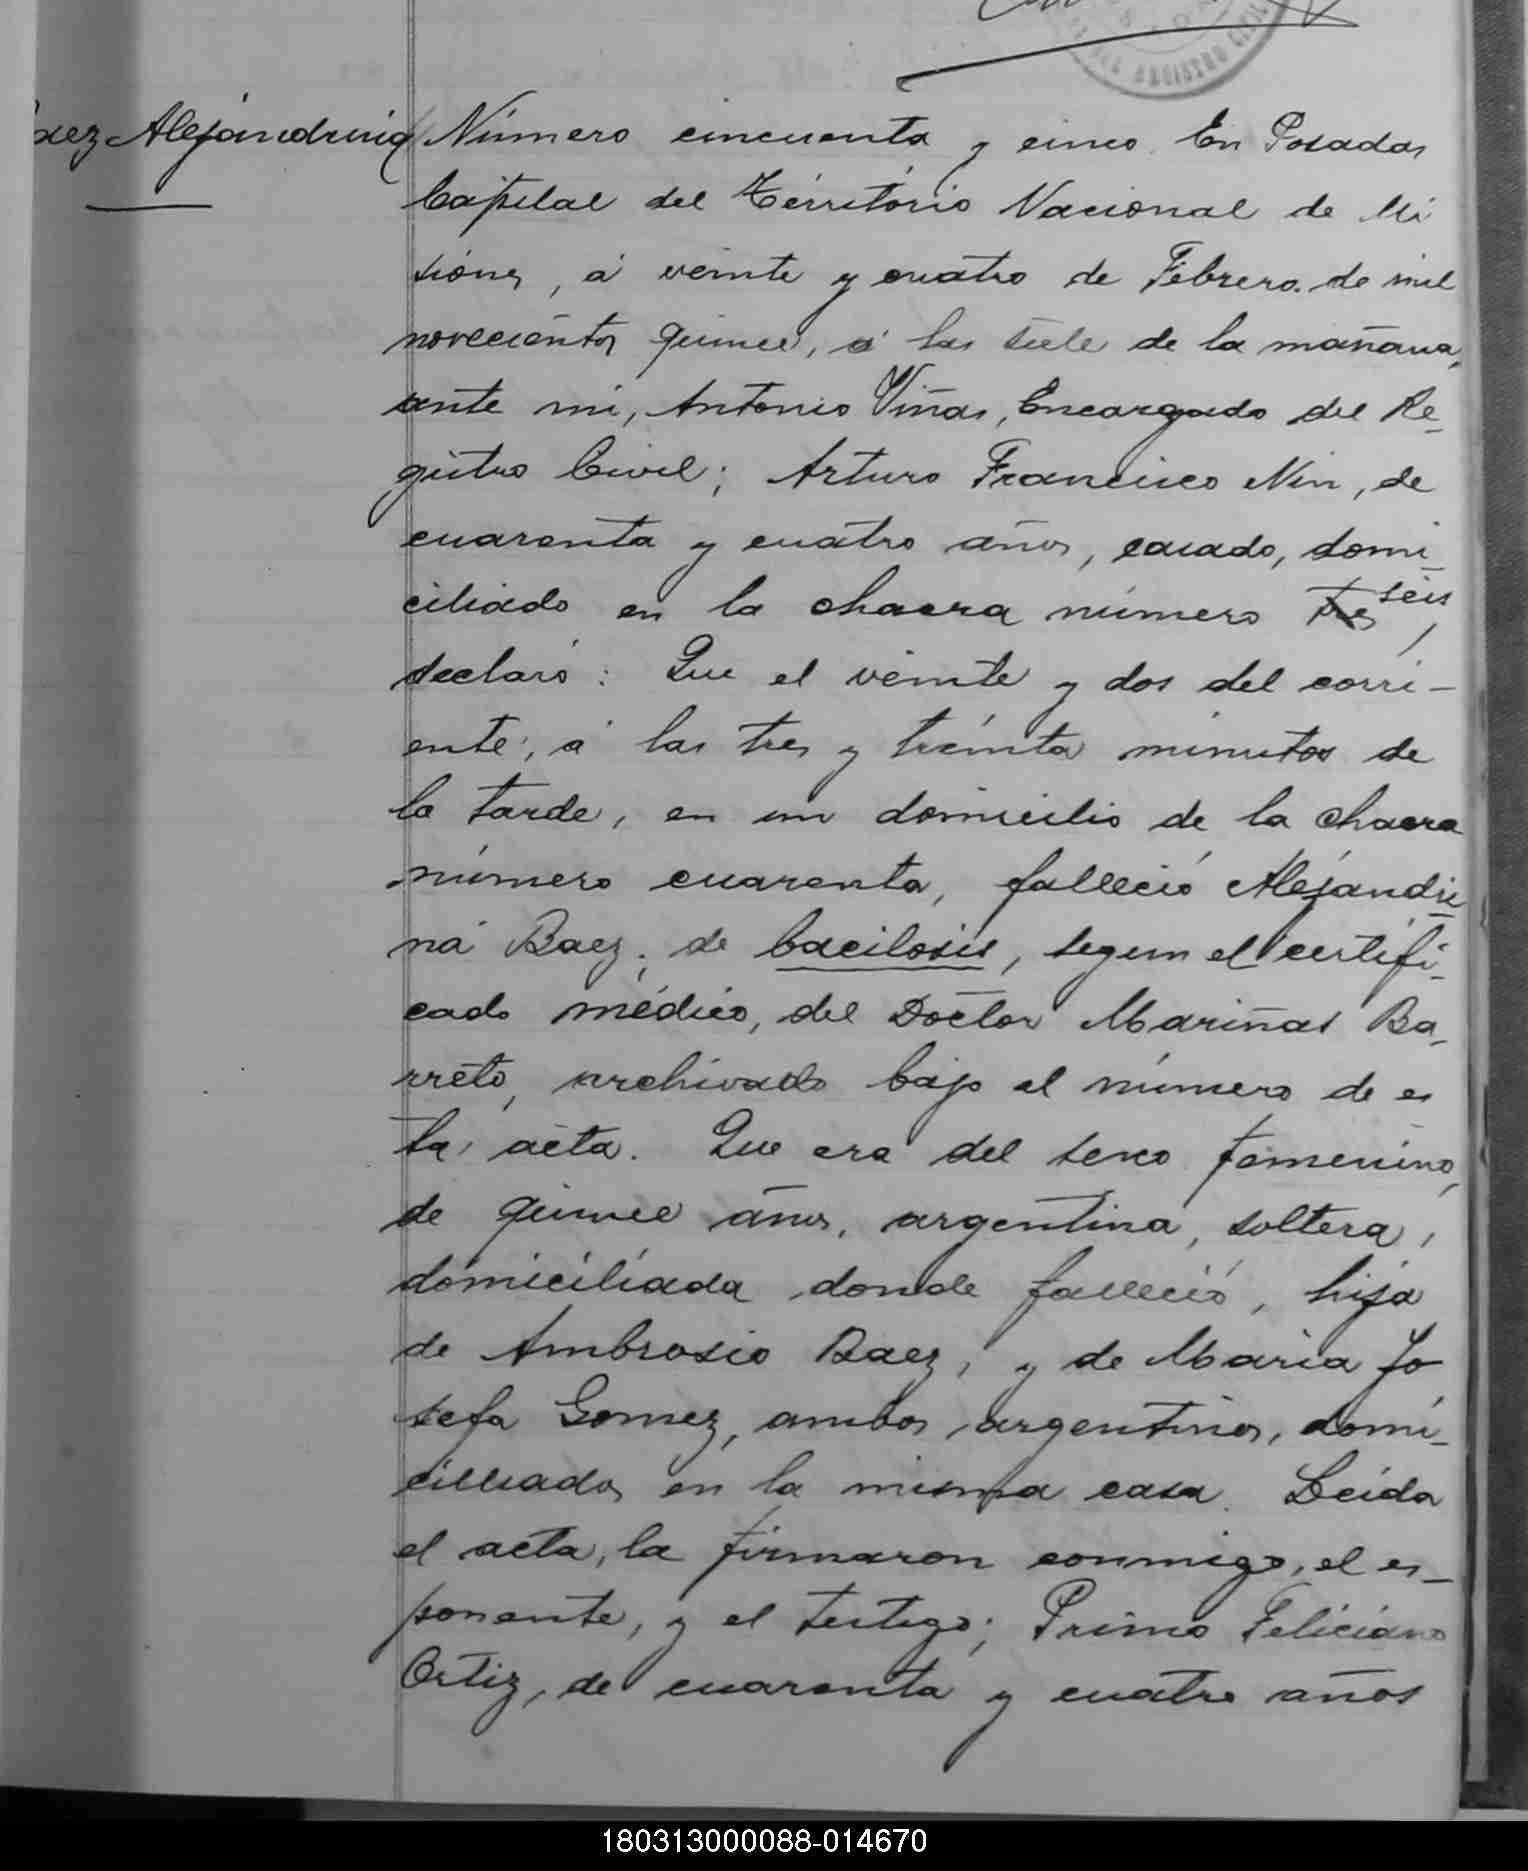 REGISTRO CIVIL
aez Alejandrina
Número cincuenta y cinco. En Posadas
Capital del Térritório Nacional de Mi
siones, á veinte y cuatro de Febrero de mil
novecientos quince, á las siete de la mañana,
ante mi, Antonio Viñas, Encargado del Re-
gistro Civil; Arturo Francisco Nin, de
cuarenta y cuatro años, casado, domi-
ciliado en la chacra número tres seis,
declaró: Que el veinte y dos del corri-
ente, á las tres y treinta minutos de
la tarde, en un domicilio de la chacra
número cuarenta, falleció Alejandri-
na Baez; de bacilosis, segun el certifi-
cado médico, del Doctor Mariñas Ba-
rreto, archivado bajo el número de es
ta acta. Que era del sexo femenino,
de quince años, argentina, soltera,
domiciliada donde falleció, hija
de Ambrosio Baez, y de Maria Jo
sefa Gomez, ambos argentinos, domi-
ciliados en la misma casa. Leida
el acta, la firmaron conmigo, el es-
ponente, y el testigo; Primo Feliciano
Ortiz, de cuarenta y cuatro años
180313000088-014670